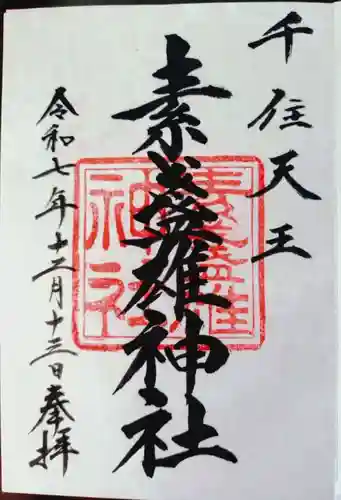 千住天王
素盞雄神社
令和七年十二月十三日奉拝
素盞雄神社